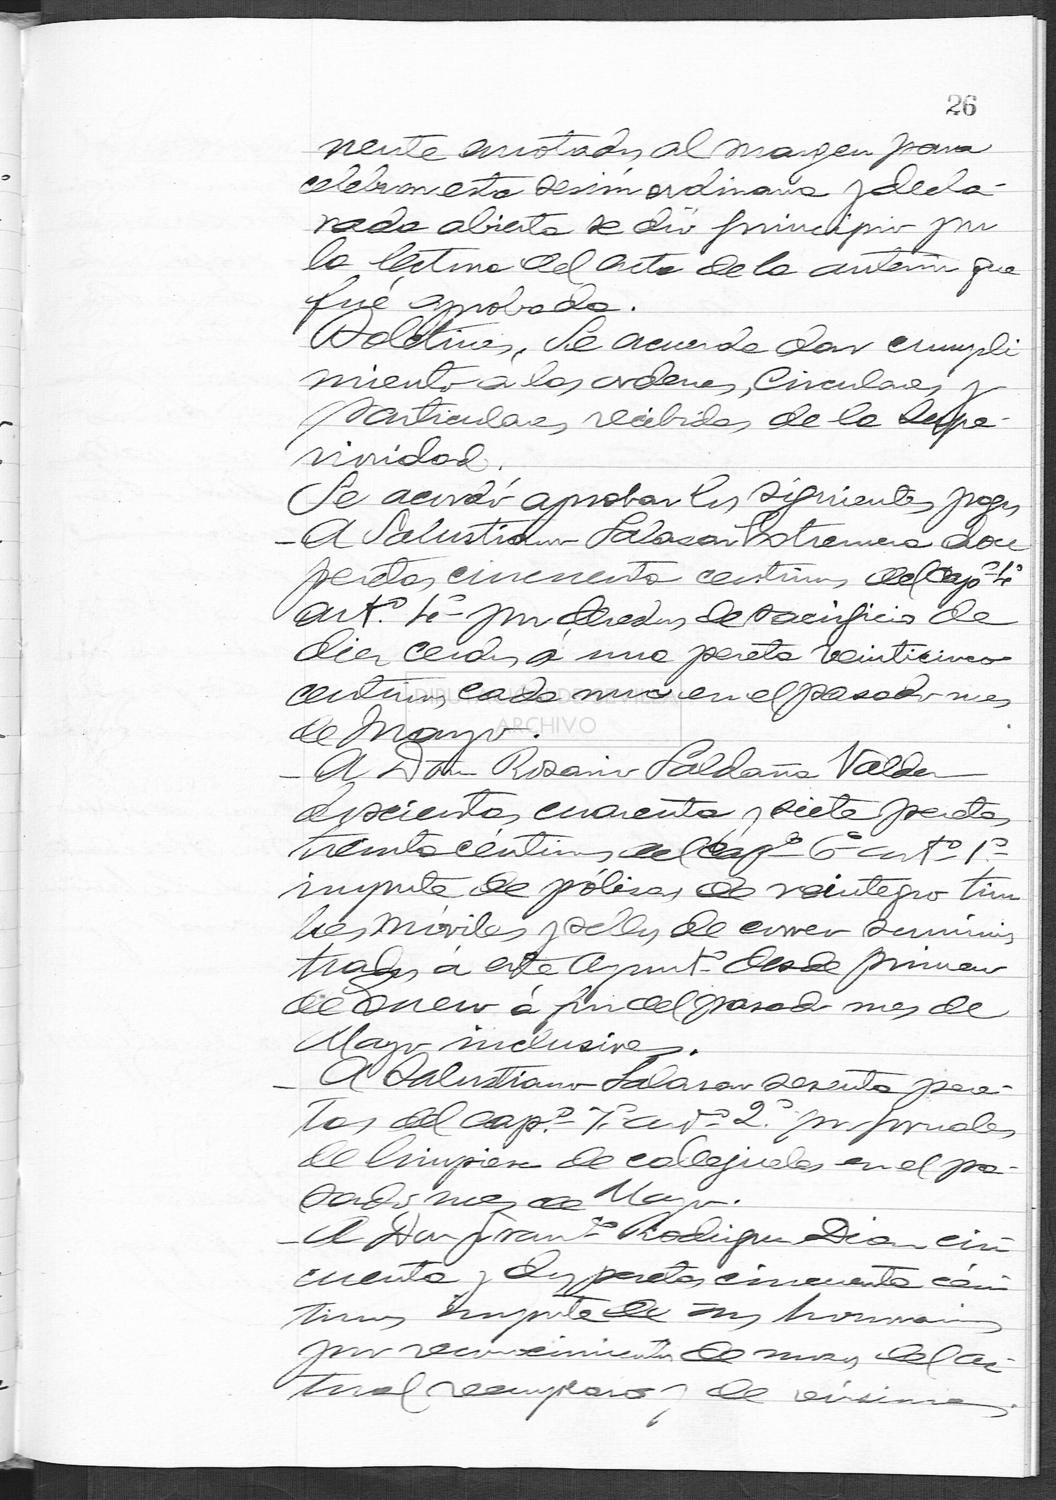 26
nente anotados al margen para
celebrar esta sesión ordinaria y decla-
rada abierta se dió principio por
la lectura del acta de la anterior que
fué aprobada.
Boletines, Se acuerda dar cumpli
miento á las ordenes, Circulares y
particulares, recibidas de la Supe-
rioridad.
Se acordó aprobar los siguientes pagos
- A Salustiano Salazar Estremera doce
pesetas cincuenta centimos del capº 4º
artº 4º por derechos de sacrificio de
diez cerdos á una peseta veinticinco
centimos cada uno en el pasado mes
DIPUTACIÓN DE SEVILLA
ARCHIVO
de Mayo.
- A Don Rosario Saldaña Valder
doscientas cuarenta y siete pesetas
treinta céntimos del capº 6º artº 1º
importe de pólizas de reintegro tim
bres móviles y sellos de correo suminis
trados á este Ayuntº desde primero
de Enero á fin del pasado mes de
Mayo inclusive.
- A Salustiano Salazar sesenta pese-
tas del capº 7º artº 2º por jornales
de limpieza de callejuelas en el pa-
sado mes de Mayo.
- A Don Franº Rodriguez Diaz cin
cuenta y dos pesetas cincuenta cén
timos importe de sus honorarios
por reconocimientos de mozos del ac-
tual reemplazo y de revisiones.